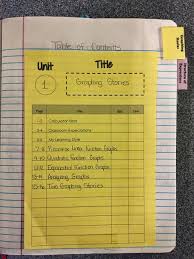 Table of Contents
Unit Title
1 Graphing Stories
Page Title
1-2 Calculator
3-4 Classroom Expectations
5-6 My Learning Style
7-8 Piecewise Linear Function Graphs
9-10 Quadratic Function Graphs
11-12 Exponential Function Graphs
13-14 Analyzing Graphs
15-16 Two Graphing Stories